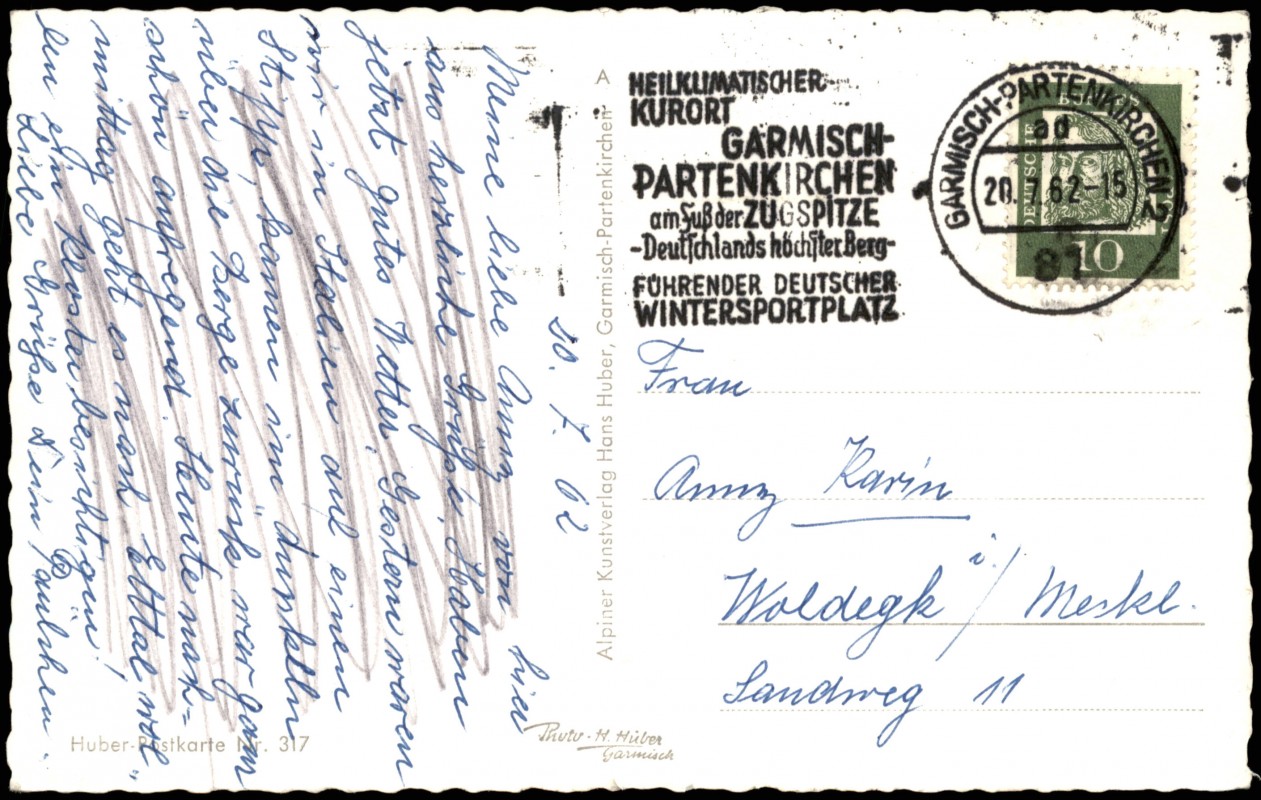 20. 7. 62
Meine liebe Anny von hier
aus herzliche Grüße. Haben
jetzt gutes Wetter. Gestern waren
wir in Italien auf einen
Stipp, kamen im dunkeln
über die Berge zurück, war ganz
schön aufregend. Heute nach-
mittag geht es nach Ettal wol-
len ein Kloster besichtigen!
Liebe Grüße Dein Paulchen.
Huber-Postkarte Nr. 317
Photo-H. Huber
Garmisch
Alpiner Kunstverlag Hans Huber, Garmisch-Partenkirchen A
HEILKLIMATISCHER
KURORT
GARMISCH-
PARTENKIRCHEN
am Fuß der ZUGSPITZE
-Deutschlands höchster Berg-
FÜHRENDER DEUTSCHER
WINTERSPORTPLATZ
GARMISCH-PARTENKIRCHEN 2
ad
20.7.62-15
81
DEUTSCHE
BUNDESPOST
10
Frau
Anny Karin
Woldegk i/ Meckl.
Sandweg 11